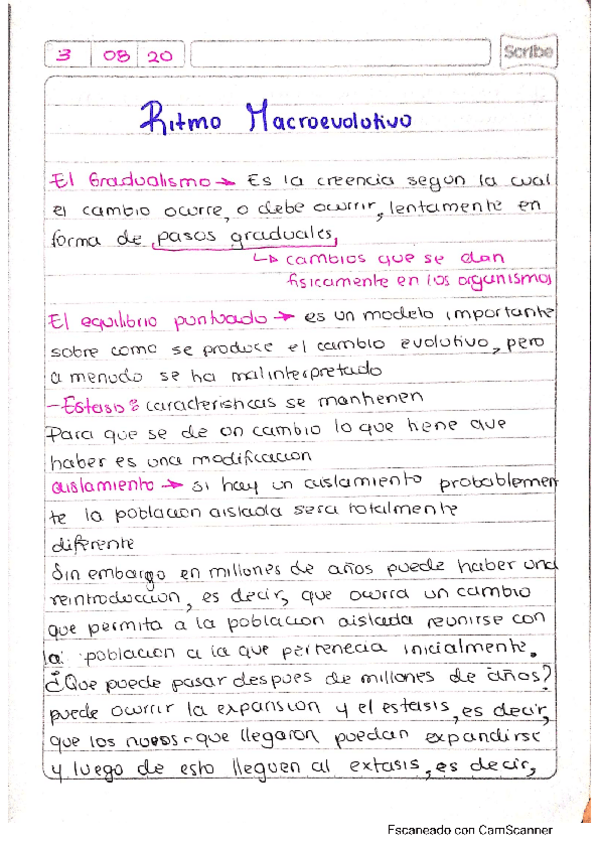 3 08 20
Scribe
Ritmo Macroevolutivo
El Gradualismo → Es la creencia segun la cual
el cambio ocurre, o debe ocurrir, lentamente en
forma de pasos graduales,
↳ cambios que se dan
fisicamente en los organismos
El equilibrio puntuado → es un modelo importante
sobre como se produce el cambio evolutivo, pero
a menudo se ha malinterpretado
- Estasis: caracteristicas se mantienen
Para que se de un cambio lo que tiene que
haber es una modificacion
aislamiento → si hay un aislamiento probablemen
te la poblacion aislada sera totalmente
diferente
Sin embargo en millones de años puede haber una
reintroduccion, es decir, que ocurra un cambio
que permita a la poblacion aislada reunirse con
la poblacion a la que pertenecia inicialmente.
¿Que puede pasar despues de millones de años?
puede ocurrir la expansion y el estasis, es decir,
que los nuevos que llegaron puedan expandirse
y luego de esto lleguen al extasis, es decir,
Escaneado con CamScanner